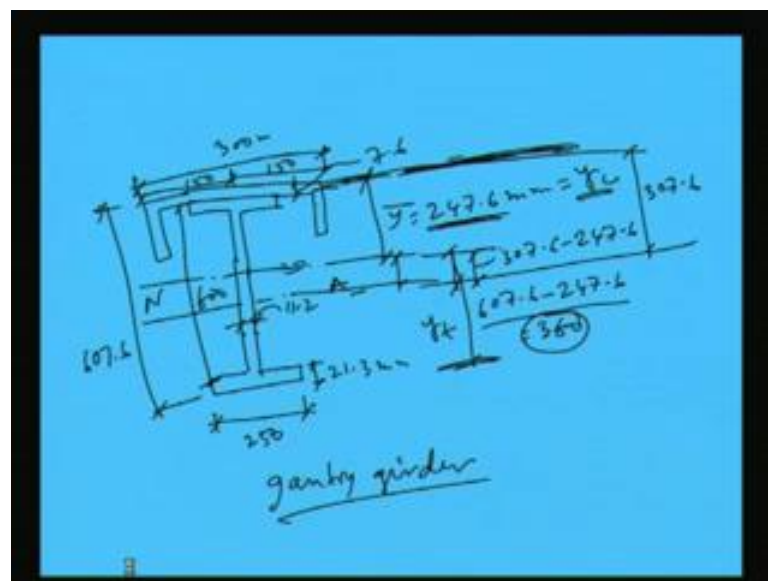 300
150 150
7.6
ȳ = 247.6 mm = yc
307.6
307.6-247.6
N
600
A
11.2
607.6
yt
607.6-247.6
360
21.3 mm
250
gantry girder